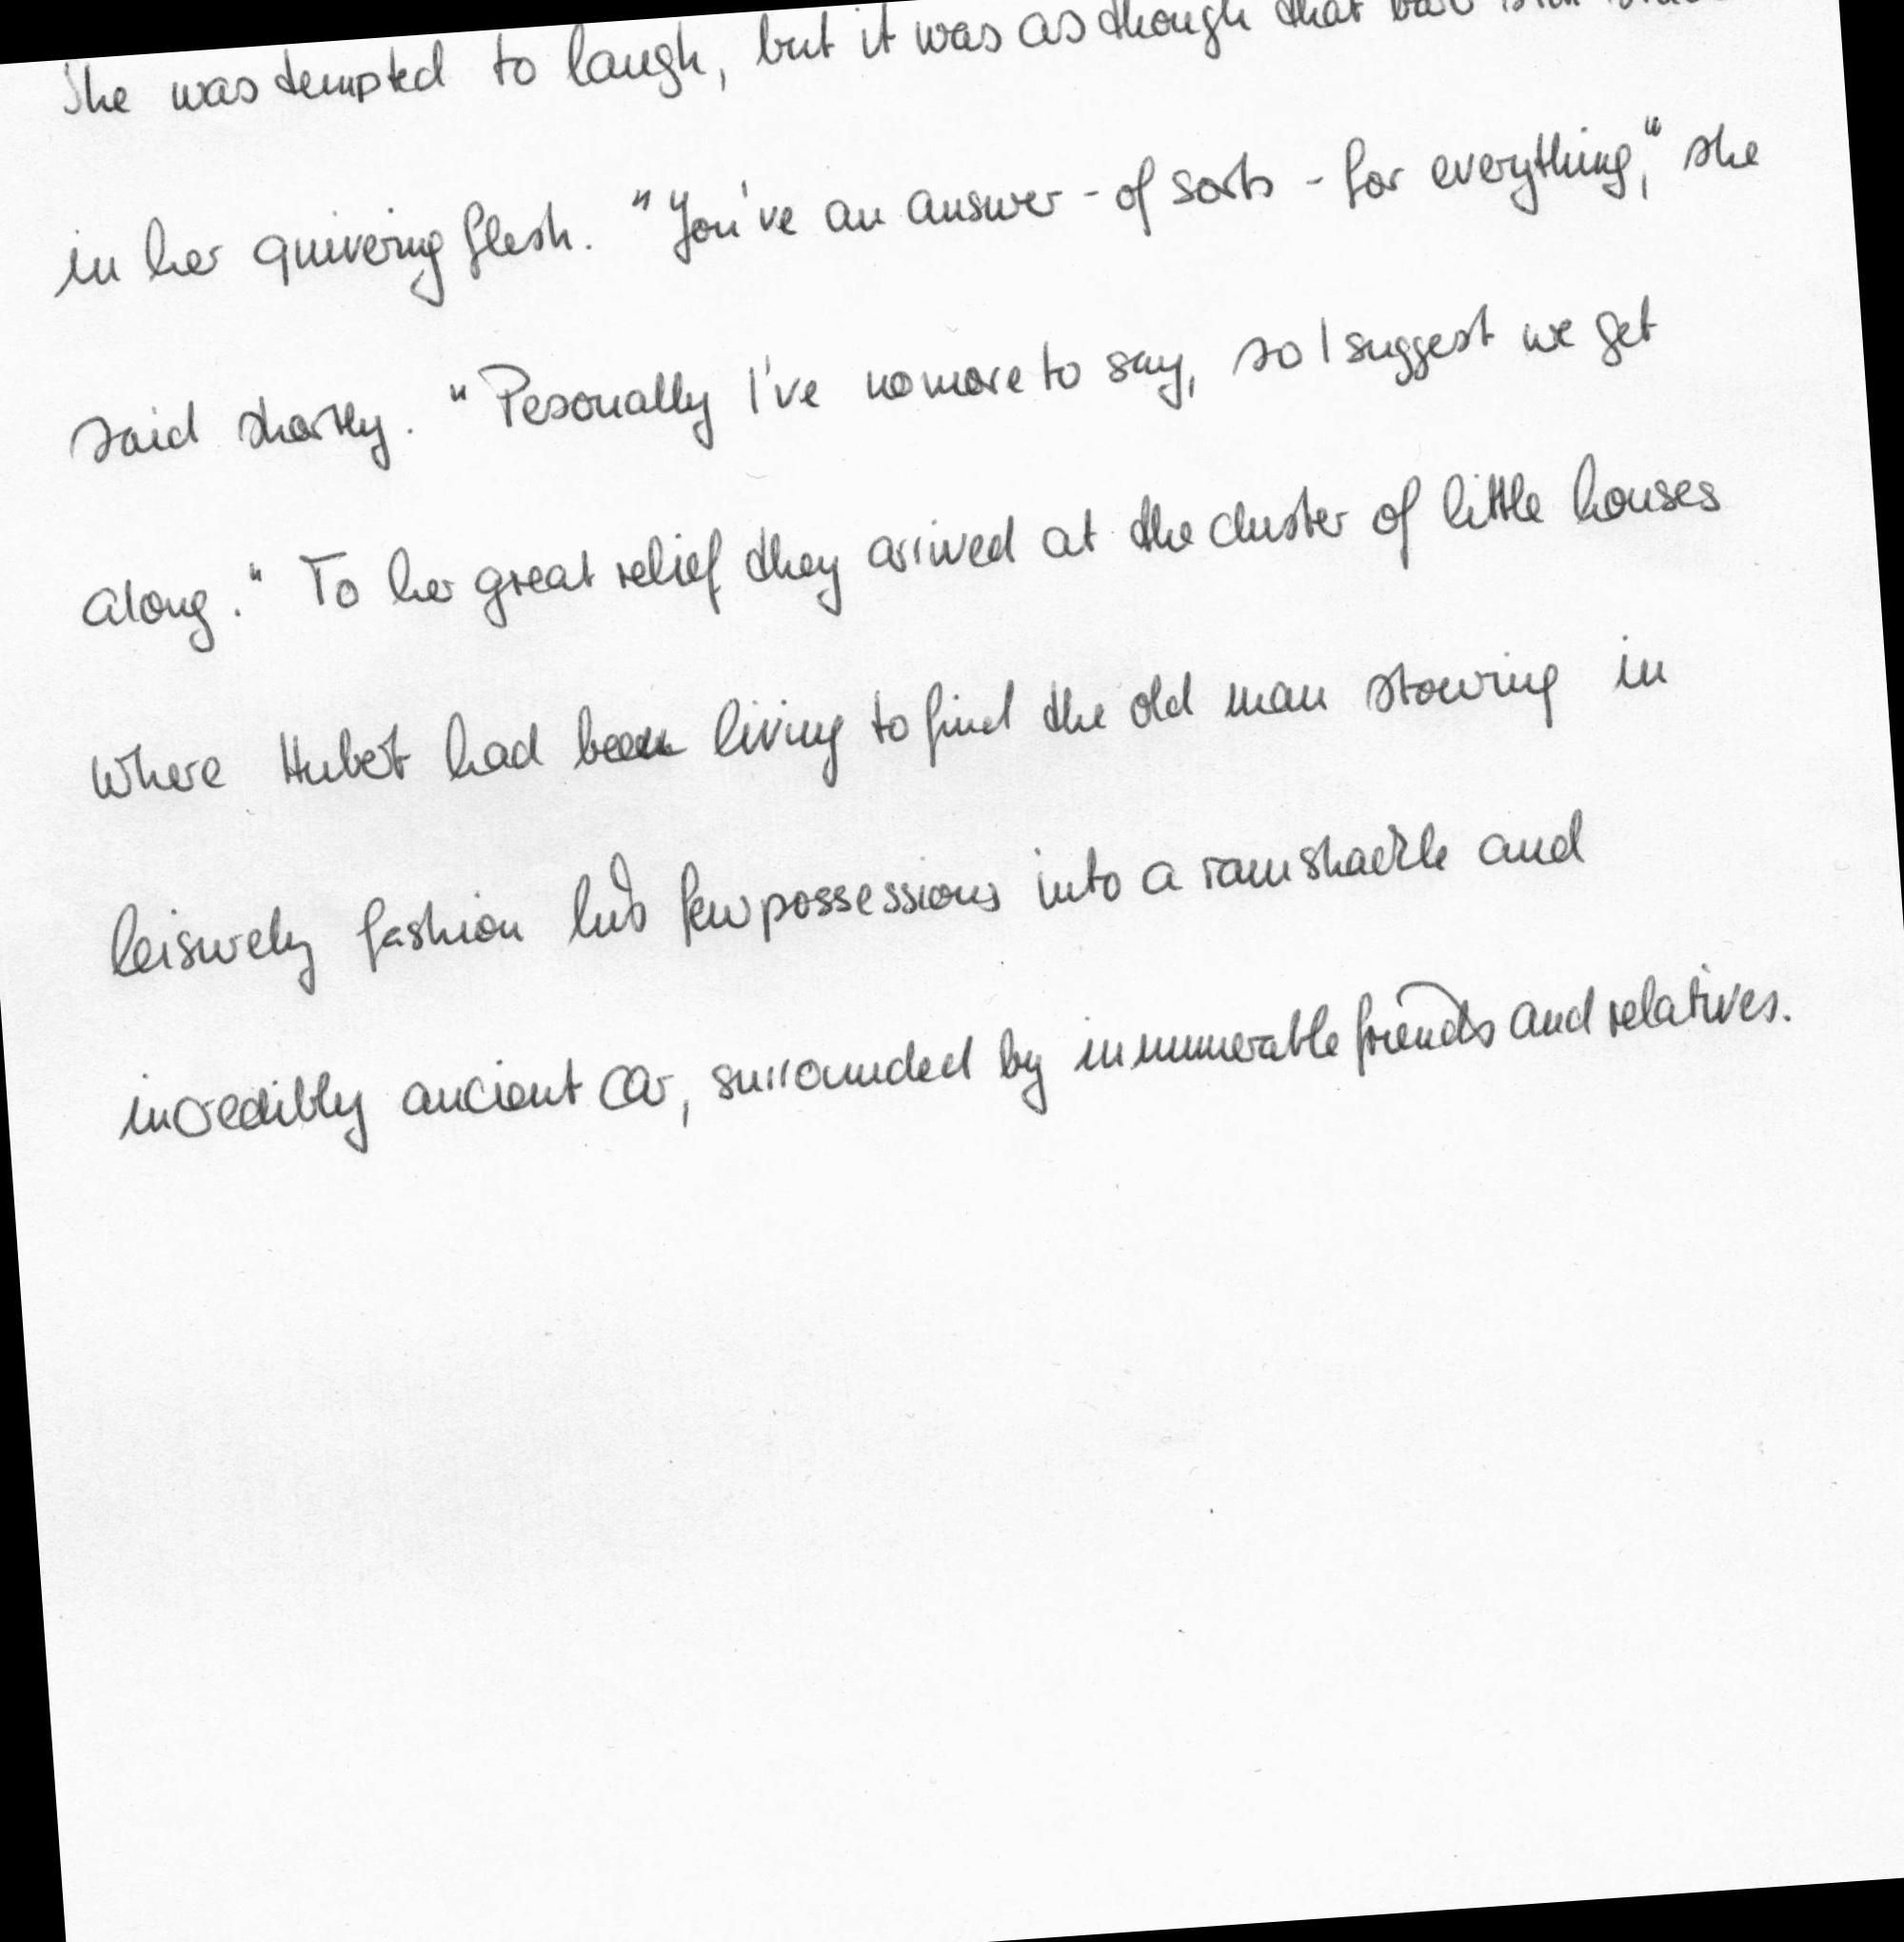 She was tempted to laugh, but it was as though that
in her quivering flesh. "You've an answer - of sorts - for everything," she
said shortly. "Pesonally I've no more to say, so I suggest we get
along." To her great relief they arrived at the cluster of little houses
where Hubert had been living to find the old man stowing in
leisurely fashion his few possessions into a ramshackle and
incredibly ancient car, surrounded by innumerable friends and relatives.